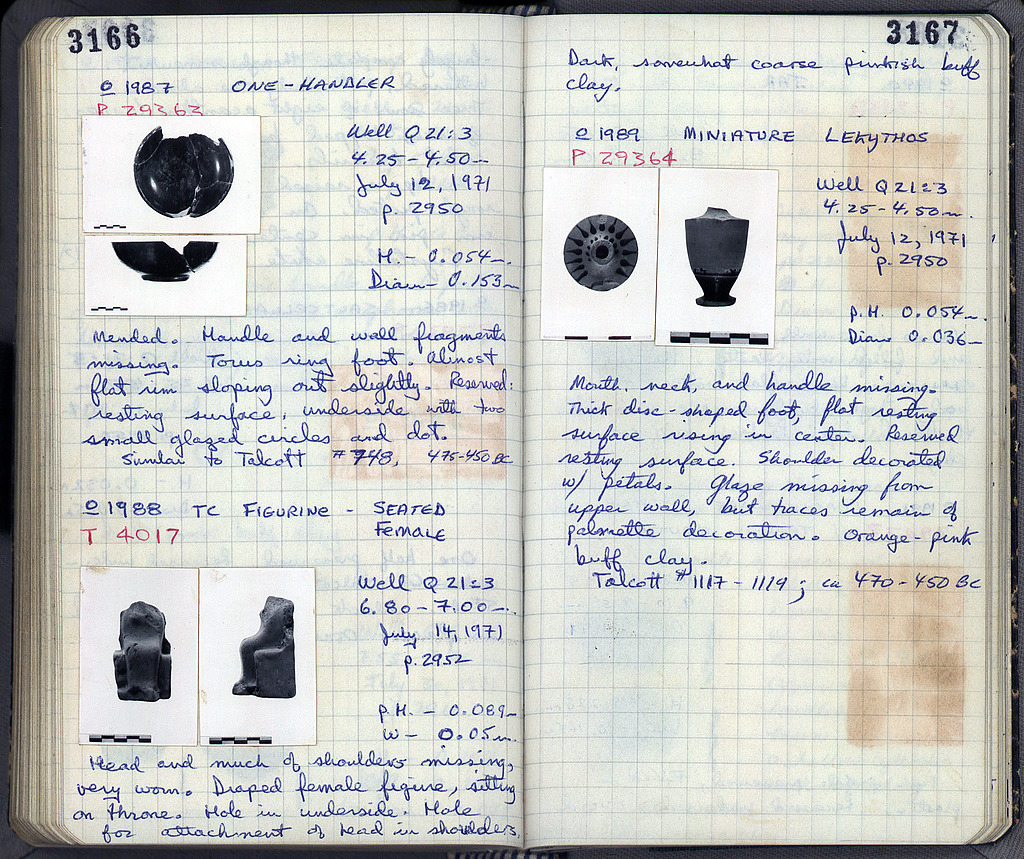 3166
o 1987 ONE-HANDLER
P 29363
Well Q 21:3
4.25-4.50m.
July 12, 1971
p. 2950
H. - 0.054m.
Diam - 0.153m
Mended. Handle and wall fragments
missing. Torus ring foot. Almost
flat rim sloping out slightly. Reserved:
resting surface, underside with two
small glazed circles and dot.
Similar to Talcott #748, 475-450 BC
o 1988 TC FIGURINE - SEATED
FEMALE
T 4017
Well Q 21:3
6.80-7.00m.
July 14, 1971
p. 2952
P.H. - 0.089m
W - 0.05m.
Head and much of shoulders missing,
very worn. Draped female figure, sitting
on throne. Hole in underside. Hole
for attachment of head in shoulders.
3167
Dark, somewhat coarse pinkish buff
clay.
o 1989 MINIATURE LEKYTHOS
P 29364
Well Q 21:3
4.25-4.50m.
July 12, 1971
p. 2950
P.H. 0.054m.
Diam 0.036m
Mouth, neck, and handle missing.
Thick disc-shaped foot, flat resting
surface rising in center. Reserved
resting surface. Shoulder decorated
w/ petals. Glaze missing from
upper wall, but traces remain of
palmette decoration. Orange-pink
buff clay.
Talcott # 1117-1119; ca 470-450 BC